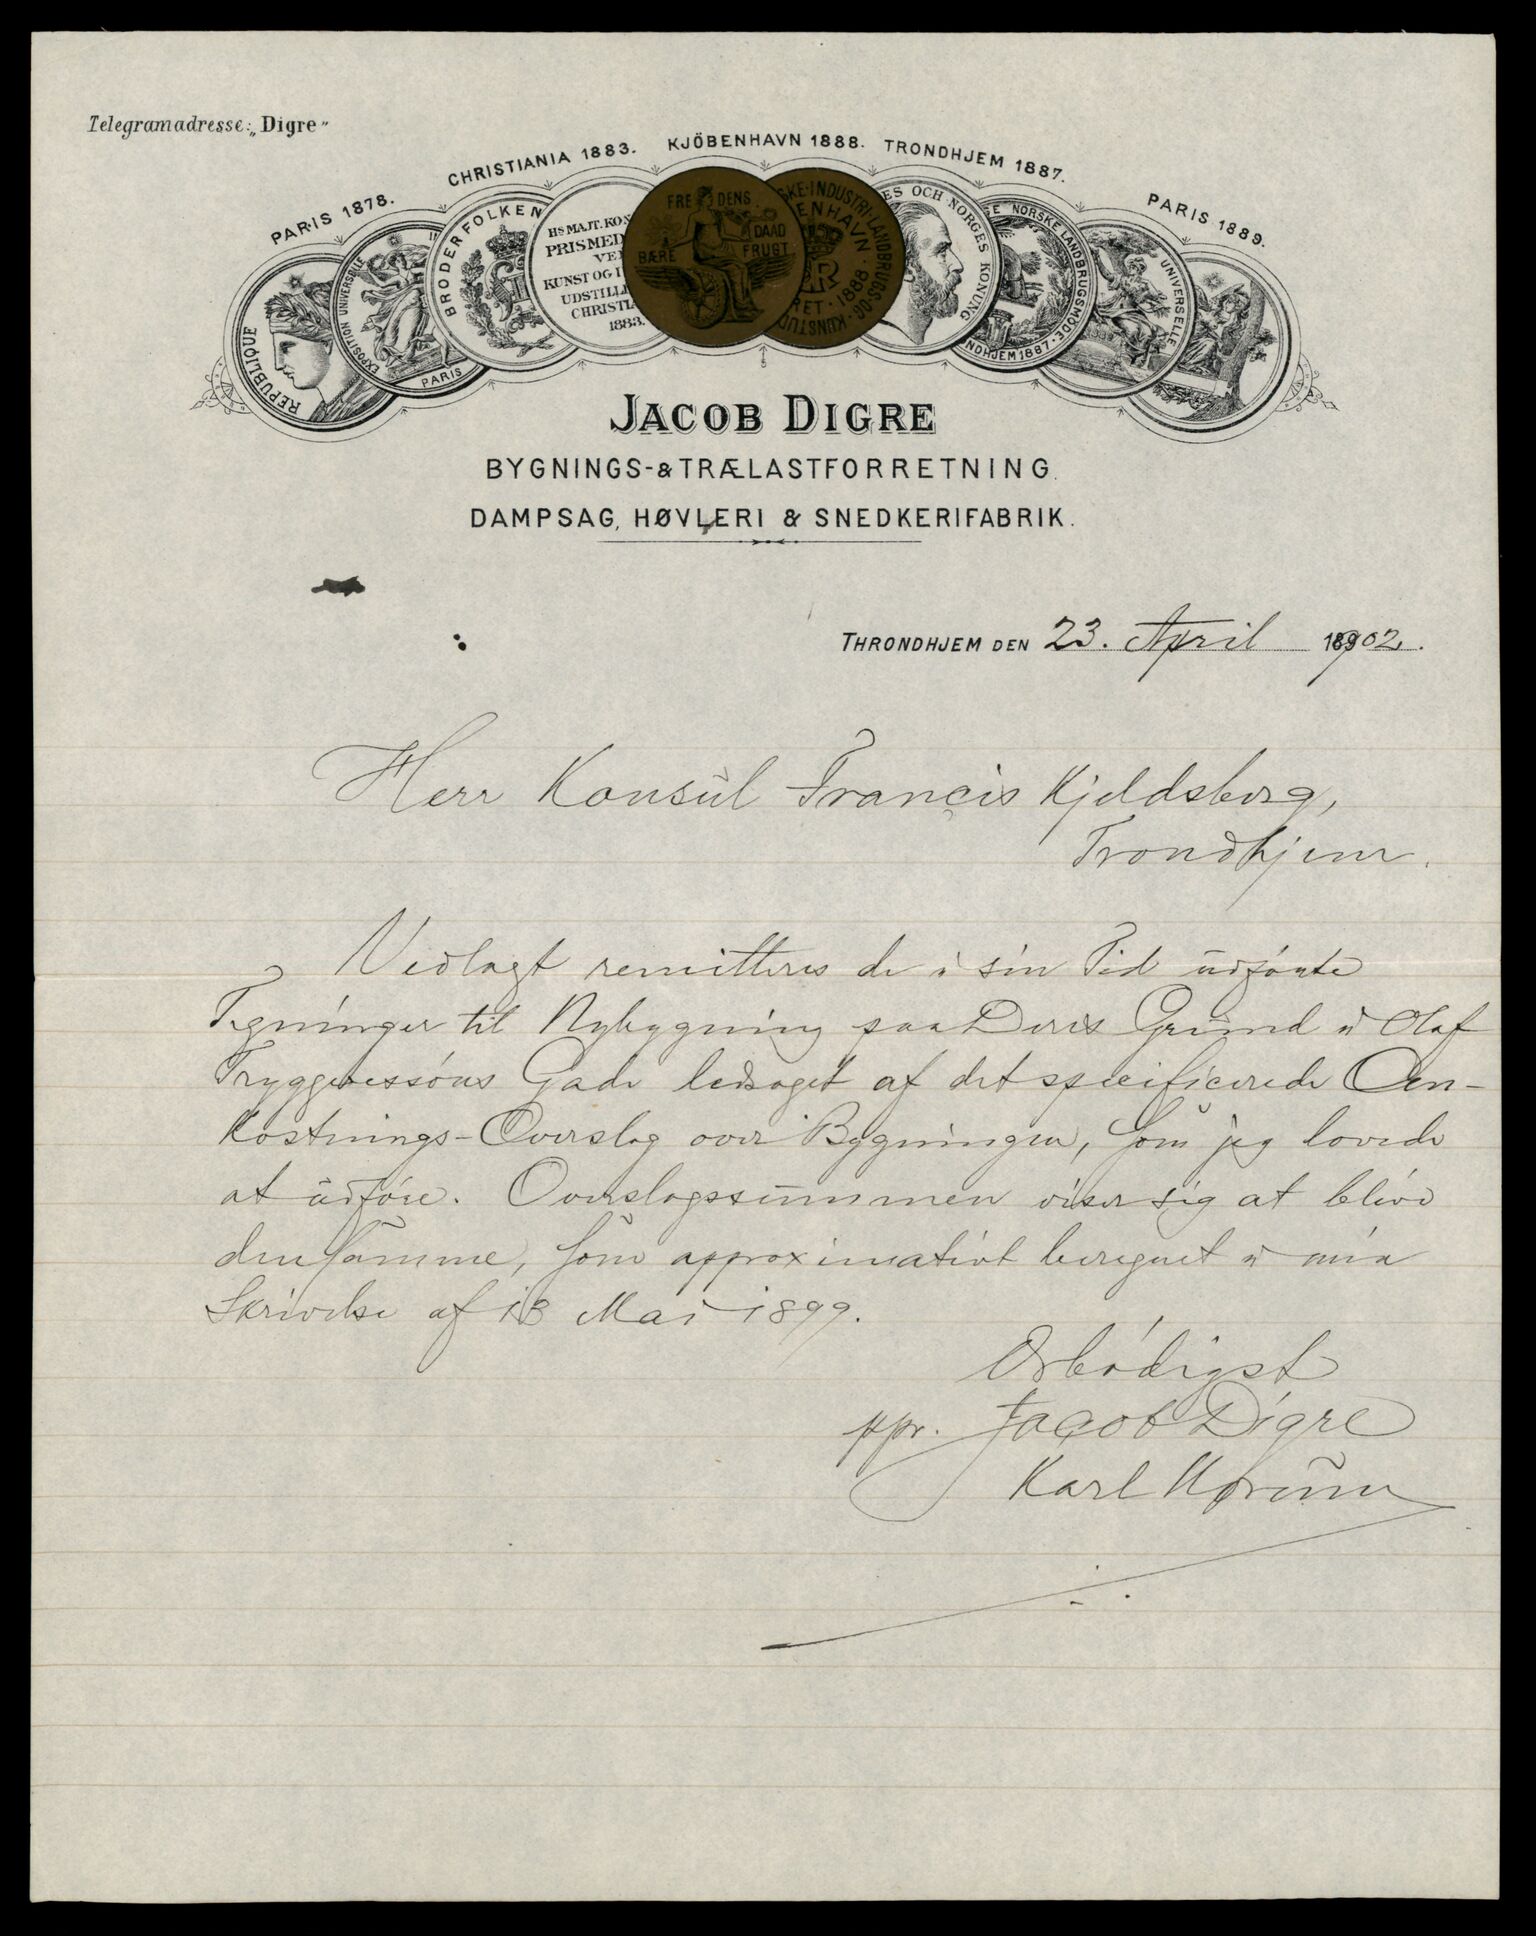 Telegramadresse: „Digre"
PARIS 1878.
CHRISTIANIA 1883.
KJÖBENHAVN 1888.
TRONDHJEM 1887.
PARIS 1889.
REPUBLIQUE
EXPOSITION UNIVERSELLE
PARIS
BRODERFOLKEN
HS MAJT. KON
PRISMED
VE
KUNST OG I
UDSTILL
CHRISTIA
1883.
FREDENS
DAAD
BÆRE FRUGT
SKE·INDUSTRI·LANDBRUGS-OG·KUNSTUD
ENHAVN
RET·1888·
ES OCH NORGES KONUNG
GE NORSKE LANDBRUGSMÖDE·
NDHJEM 1887·
UNIVERSELLE
JACOB DIGRE
BYGNINGS-& TRÆLASTFORRETNING.
DAMPSAG, HØVLERI & SNEDKERIFABRIK.
THRONDHJEM DEN 23. April 1902.
Herr Konsul Francis Kjeldsberg,
Trondhjem.
Vedlagt remitteres de i sin Tid udførte
Tegninger til Nybygning paa Deres Grund i Olaf
Tryggvessøns Gade ledsaget af det specificerede Om-
kostnings-Overslag over Bygningen, som jeg lovede
at udføre. Overslagssummen viser sig at blive
densamme, som approximativt beregnet i min
Skrivelse af 13 Mai 1899.
Ærbødigst
ppr. Jacob Digre
Karl Norum